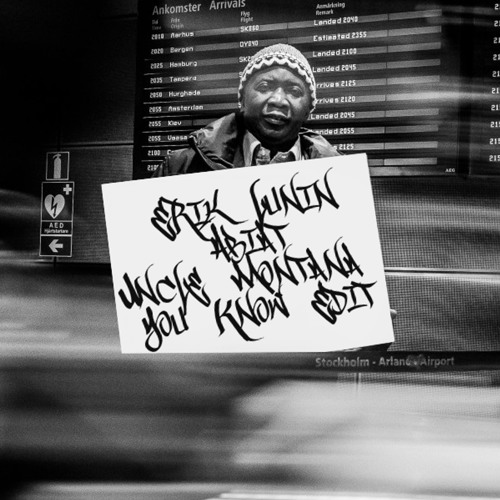 Ankomster Arrivals
Tid Från Flyg Anmärkning
Time Origin Flight Remark
2010 Aarhus SK2
Landed 2040
2020 Bergen DY
Estimated 2355
2025 Hamburg SK2
Landed 2100
2035 Tampere
Landed 2045
2050 Hurghada
Arrives 2125
2055 Amsterdam
Arrives 2120
2055 Kiev
Landed 2045
2055 Vaasa
Landed 2055
2100
Arrives 2125
AED
AED
Hjärtstartare
ERIK LUNIN
ABIAT
UNCLE MONTANA
YOU KNOW EDIT
Stockholm - Arlanda Airport